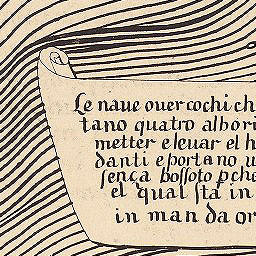 Le naue ouer cochi ch
tano quatro albori
metter e leuar el h
danti e portano u
sença bossoto p che
el qual sta in
in man da or